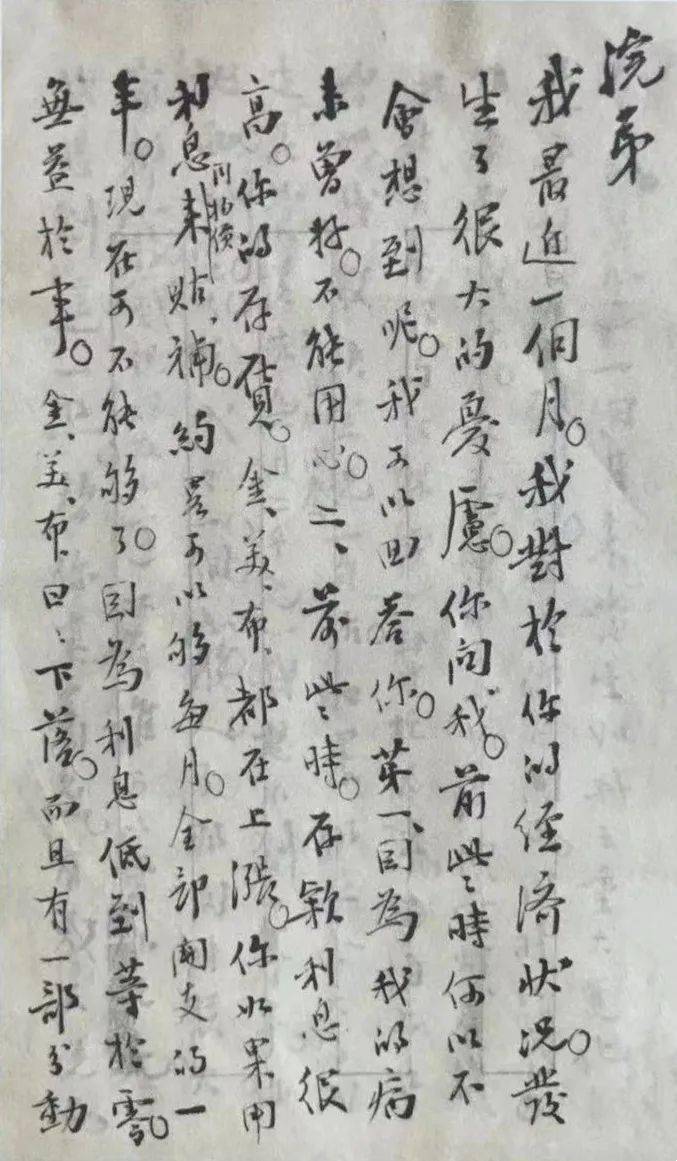 浣弟
我最近一個月。我對於你的經济狀况。發
生了很大的憂慮。你问我。前些時何以不
會想到呢。我可以回答你。第一、因為我的病
未曾好。不能用心。二、前些時。存款利息很
高。你的存貨。金、美、布、都在上漲。你如果用
利息来贴補。約畧可以够每月。全部開支的一
川物價
半。現在可不能够了。因為利息低到等於零。
無益於事。金、美、布、日日下落。而且有一部分動